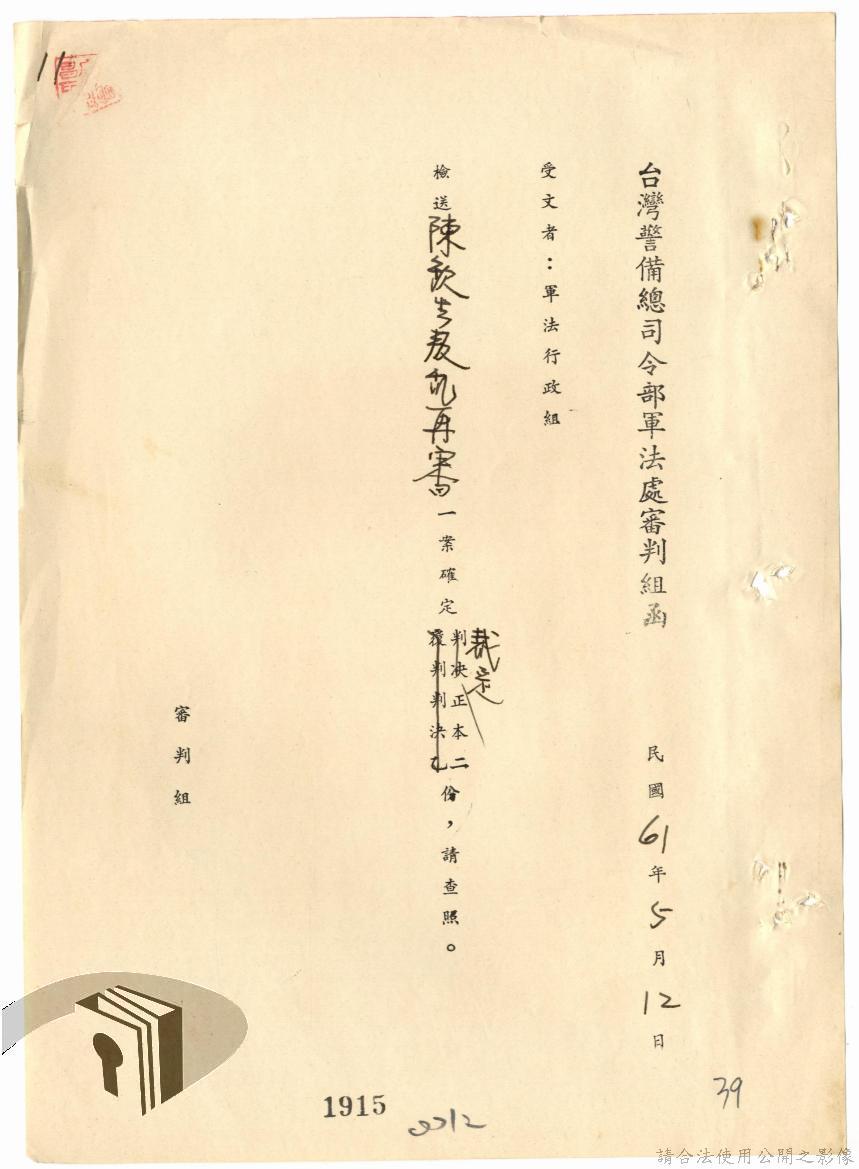 台灣警備總司令部軍法處審判組函
民國61年5月12日
受文者：軍法行政組
檢送陳欽生叛亂再審一案確定裁定
判決正本二
覆判判決乙
份，請查照。
審判組
11
1915
39
請合法使用公開之影像